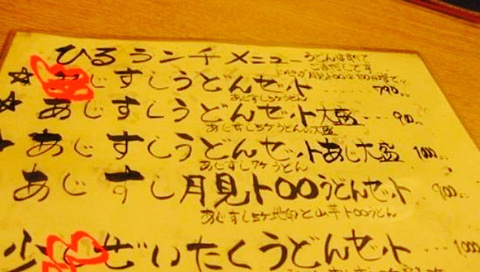 ひるランチメニュー
うどんは全て
☆あじすしうどんセット…790
あじすし5ケうどん
☆あじすしうどんセット大盛…900
あじすし5ケうどん大盛
あじすしうどんセットあじ大盛 1000
あじすし7ケうどん
あじすし月見トロロうどんセット
あじすし5ケ地卵と山芋トロロうどん
少しぜいたくうどんセット…1000